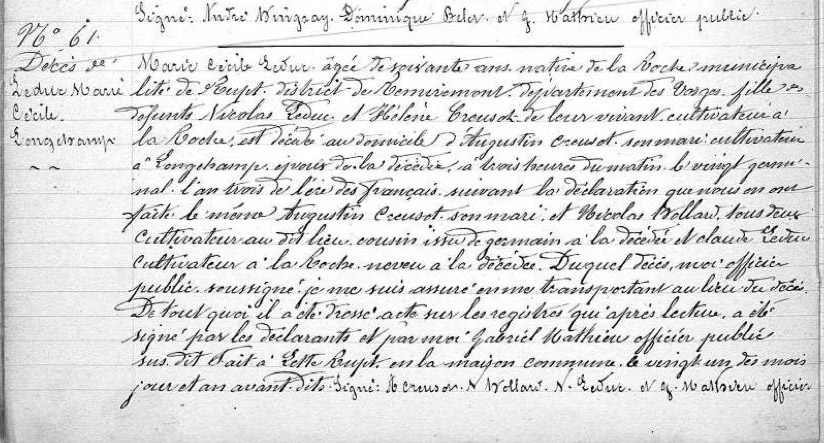 Signé: André Wingray. Dominique Beler. et G. Mathieu officier public.
N.º 61.
Décès de
Leduc Marie
Cécile.
Longchamp
Marie Cécile Leduc. âgée de soixante ans. native de la Roche. municipa
lité de Rupt. district de Remiremont. département des Vosges. fille des
défunts Nicolas Leduc et Hélène Creusot. de leur vivant cultivateur à
la Roche, est décédée au domicile d'Augustin Creusot. son mari. cultivateur
à Longchamp. époux de la décédée, à trois heures du matin. le vingt germi-
nal. l'an trois de l'ère des français. suivant la déclaration que nous en ont
faite. le même Augustin Creusot. son mari. et Nicolas Vollard. tous deux
cultivateur au dit lieu. cousin issu de germain à la décédée et claude Leduc
cultivateur à la Roche. neveu à la décédée. Duquel décès, moi officier
public. soussigné. je me suis assuré en me transportant au lieu du décès.
De tout quoi il a été dressé acte sur les registres qui après lecture, a été
signé par les déclarants et par moi Gabriel Mathieu officier public
sus. dit. Fait à Lette Rupt. en la maison commune. le vingt un des mois
jour et an avant. dits. Signé: A Creuson. N Vollard. N. Leduc. et G. Mathieu officier